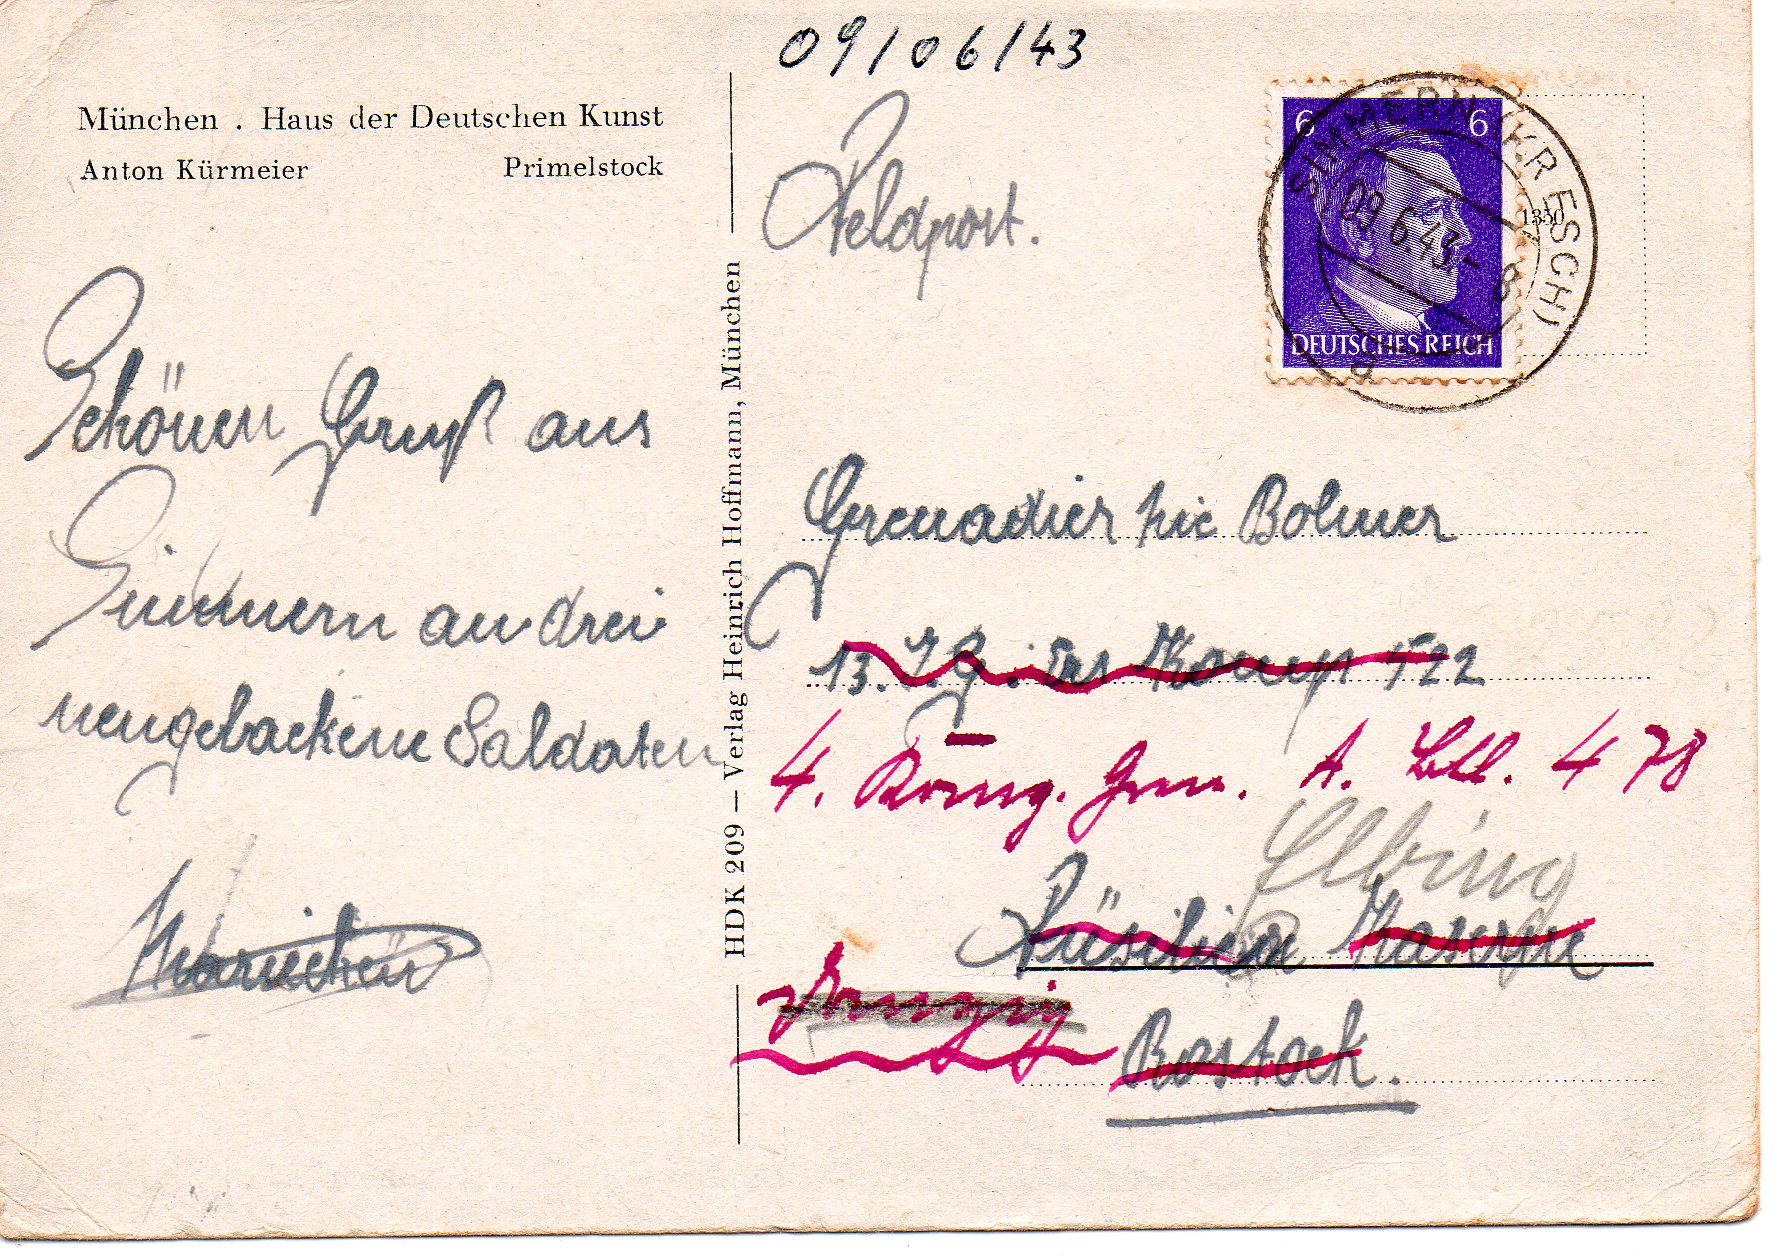 09/06/43
München . Haus der Deutschen Kunst
Anton Kürmeier Primelstock
Schönen Gruß aus
Simmern an drei
neugebackene Soldaten
HDK 209 – Verlag Heinrich Hoffmann, München
Feldpost.
6 6
DEUTSCHES REICH
SIMMERN (KR ESCH)
09.6.43.- 8
a
1350
Grenadier Nic Bolmer
13. I.G. Ers Komp 522
4. Komp. Gren. A. Btl. 478
Elbing
Füsilier Kaserne
Danzig
Rostock.